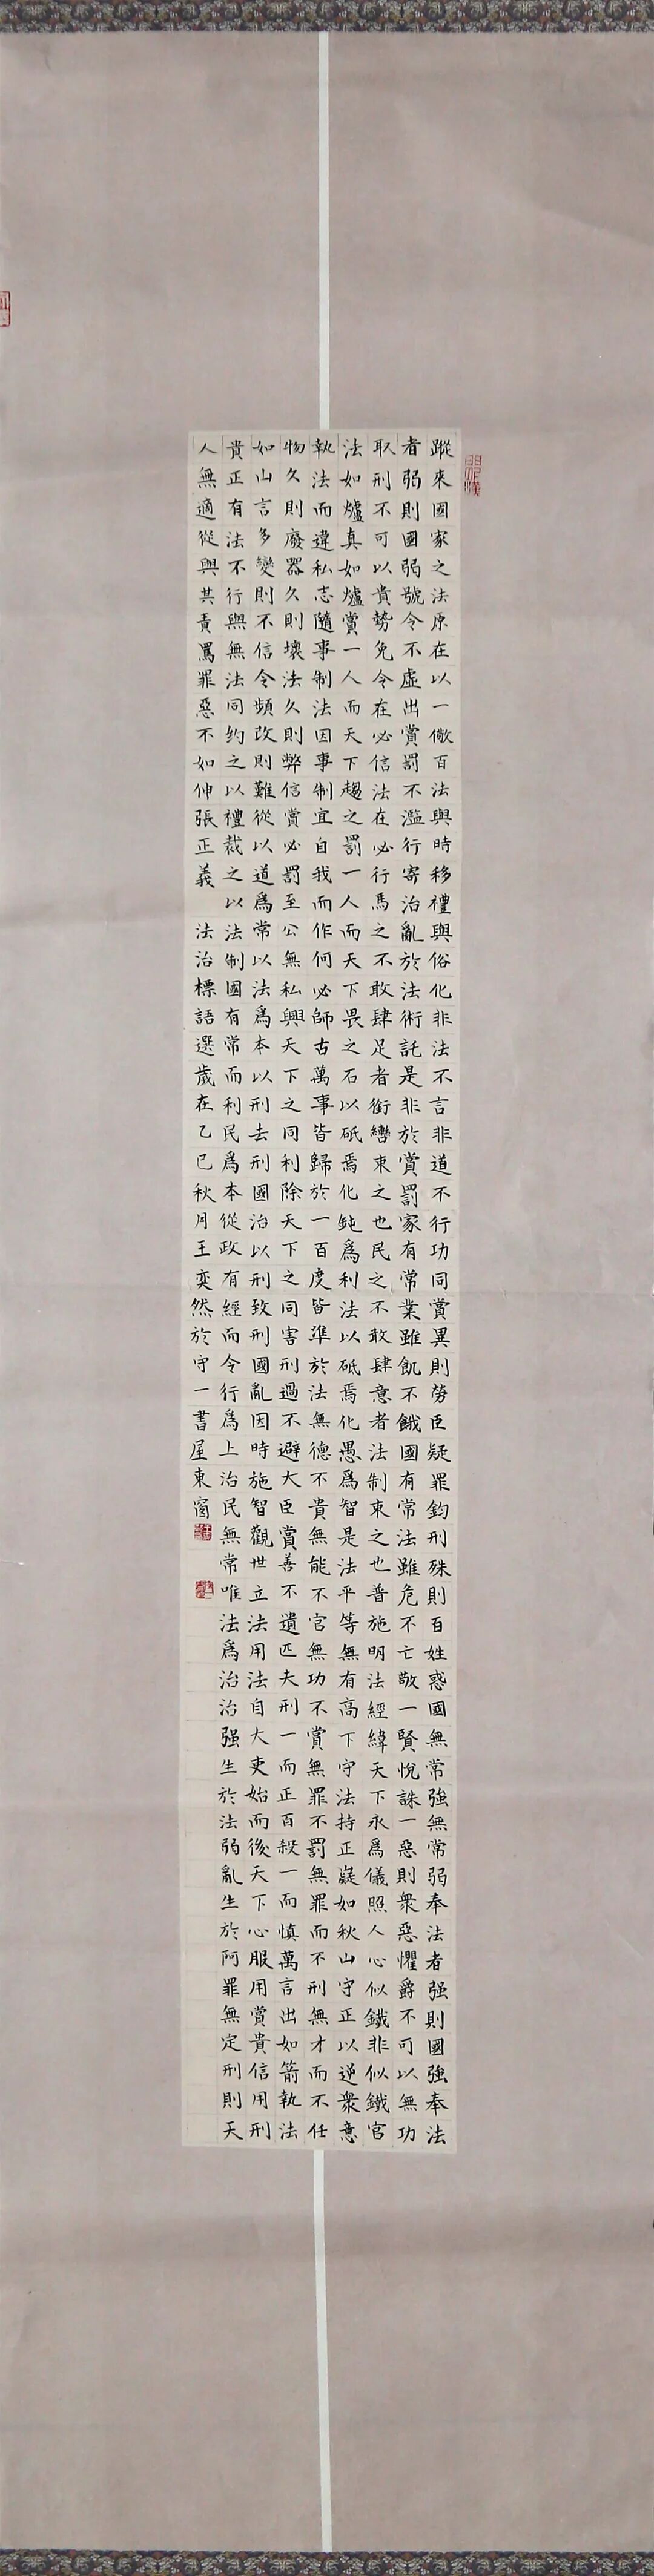 蹤來國家之法原在以一儆百法與時移禮與俗化非法不言非道不行功同賞異則勞臣疑罪鈞刑殊則百姓惑國無常強無常弱奉法者强則國強奉法
者弱則國弱號令不虛出賞罰不濫行寄治亂於法術託是非於賞罰家有常業雖飢不餓國有常法雖危不亡敬一賢悅誅一惡則衆惡懼爵不可以無功
取刑不可以貴勢免令在必信法在必行馬之不敢肆足者銜轡束之也民之不敢肆意者法制束之也普施明法經緯天下永爲儀照人心似鐵非似鐵官
法如爐真如爐賞一人而天下趨之罰一人而天下畏之石以砥焉化鈍爲利法以砥焉化愚爲智是法平等無有高下守法持正嶷如秋山守正以逆衆意
執法而違私志隨事制法因事制宜自我而作何必師古萬事皆歸於一百度皆準於法無德不貴無能不官無功不賞無罪不罰無罪而不刑無才而不任
物久則廢器久則壞法久則弊信賞必罰至公無私興天下之同利除天下之同害刑過不避大臣賞善不遺匹夫刑一而正百殺一而慎萬言出如箭執法
如山言多變則不信令頻改則難從以道爲常以法爲本以刑去刑國治以刑致刑國亂因時施智觀世立法用法自大吏始而後天下心服用賞貴信用刑
貴正有法不行與無法同約之以禮裁之以法制國有常而利民爲本從政有經而令行爲上治民無常唯法爲治治强生於法弱亂生於阿罪無定刑則天
人無適從與其責罵罪惡不如伸張正義 法治標語選歲在乙巳秋月王奕然於守一書屋東窗